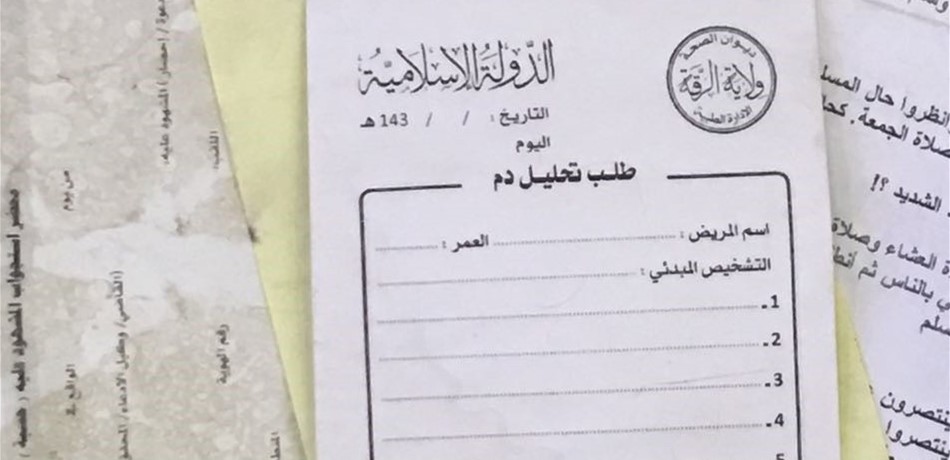 الدولة الإسلامية
ديوان الصحة
ولاية الرقة
الإدارة الطبية
التاريخ : / / 143 هـ
اليوم
طلب تحليل دم
اسم المريض : العمر :
التشخيص المبدئي :
1-
2-
3-
4-
5
انظروا حال المسل
صلاة الجمعة. كحا
الشديد ؟!
ة العشاء وصلاة
ي بالناس ثم أنطا
سلم
ينتصرون
ينتصروا
محضر استجواب المشهود عليه
من يوم
الواقع في
دعوة / إحضار ) المشهود عليه:
اللقب:
رقم الهوية